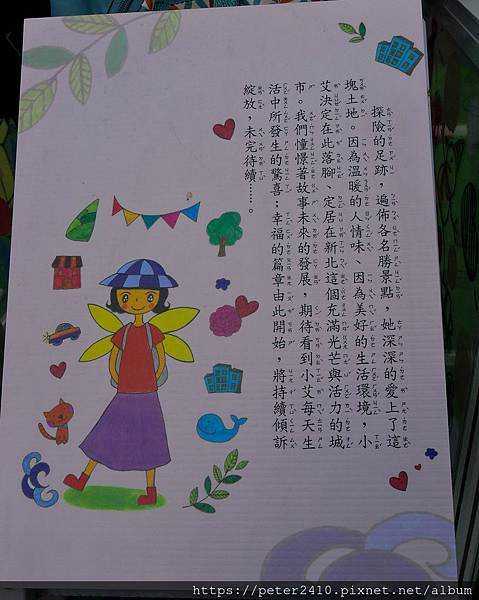 探險的足跡，遍佈各名勝景點，她深深的愛上了這
塊土地。因為溫暖的人情味、因為美好的生活環境，小
艾決定在此落腳、定居在新北這個充滿光芒與活力的城
市。我們憧憬著故事未來的發展，期待看到小艾每天生
活中所發生的驚喜；幸福的篇章由此開始，將持續傾訴
綻放，未完待續……。
https://peter2410.pixnet.net/album